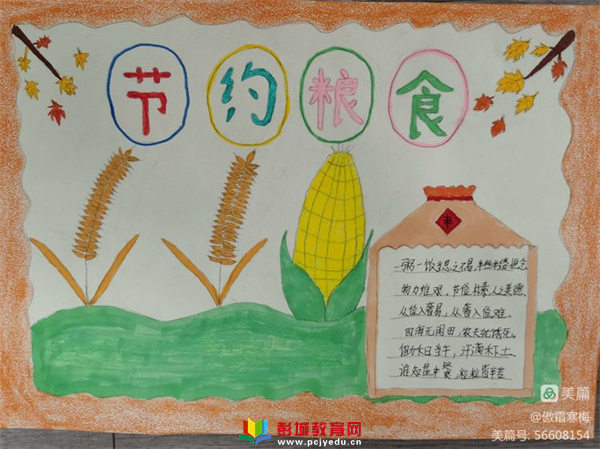 节约粮食
丰
一粥一饭当思之不易,半丝半缕恒念
物力维艰。节俭本是人之美德
从俭入奢易,从奢入俭难。
四海无闲田,农夫犹饿死。
锄禾日当午,汗滴禾下土。
谁知盘中餐,粒粒皆辛苦
美篇
@傲霜寒梅
美篇号: 56608154
彭城教育网
www.pcjyedu.cn